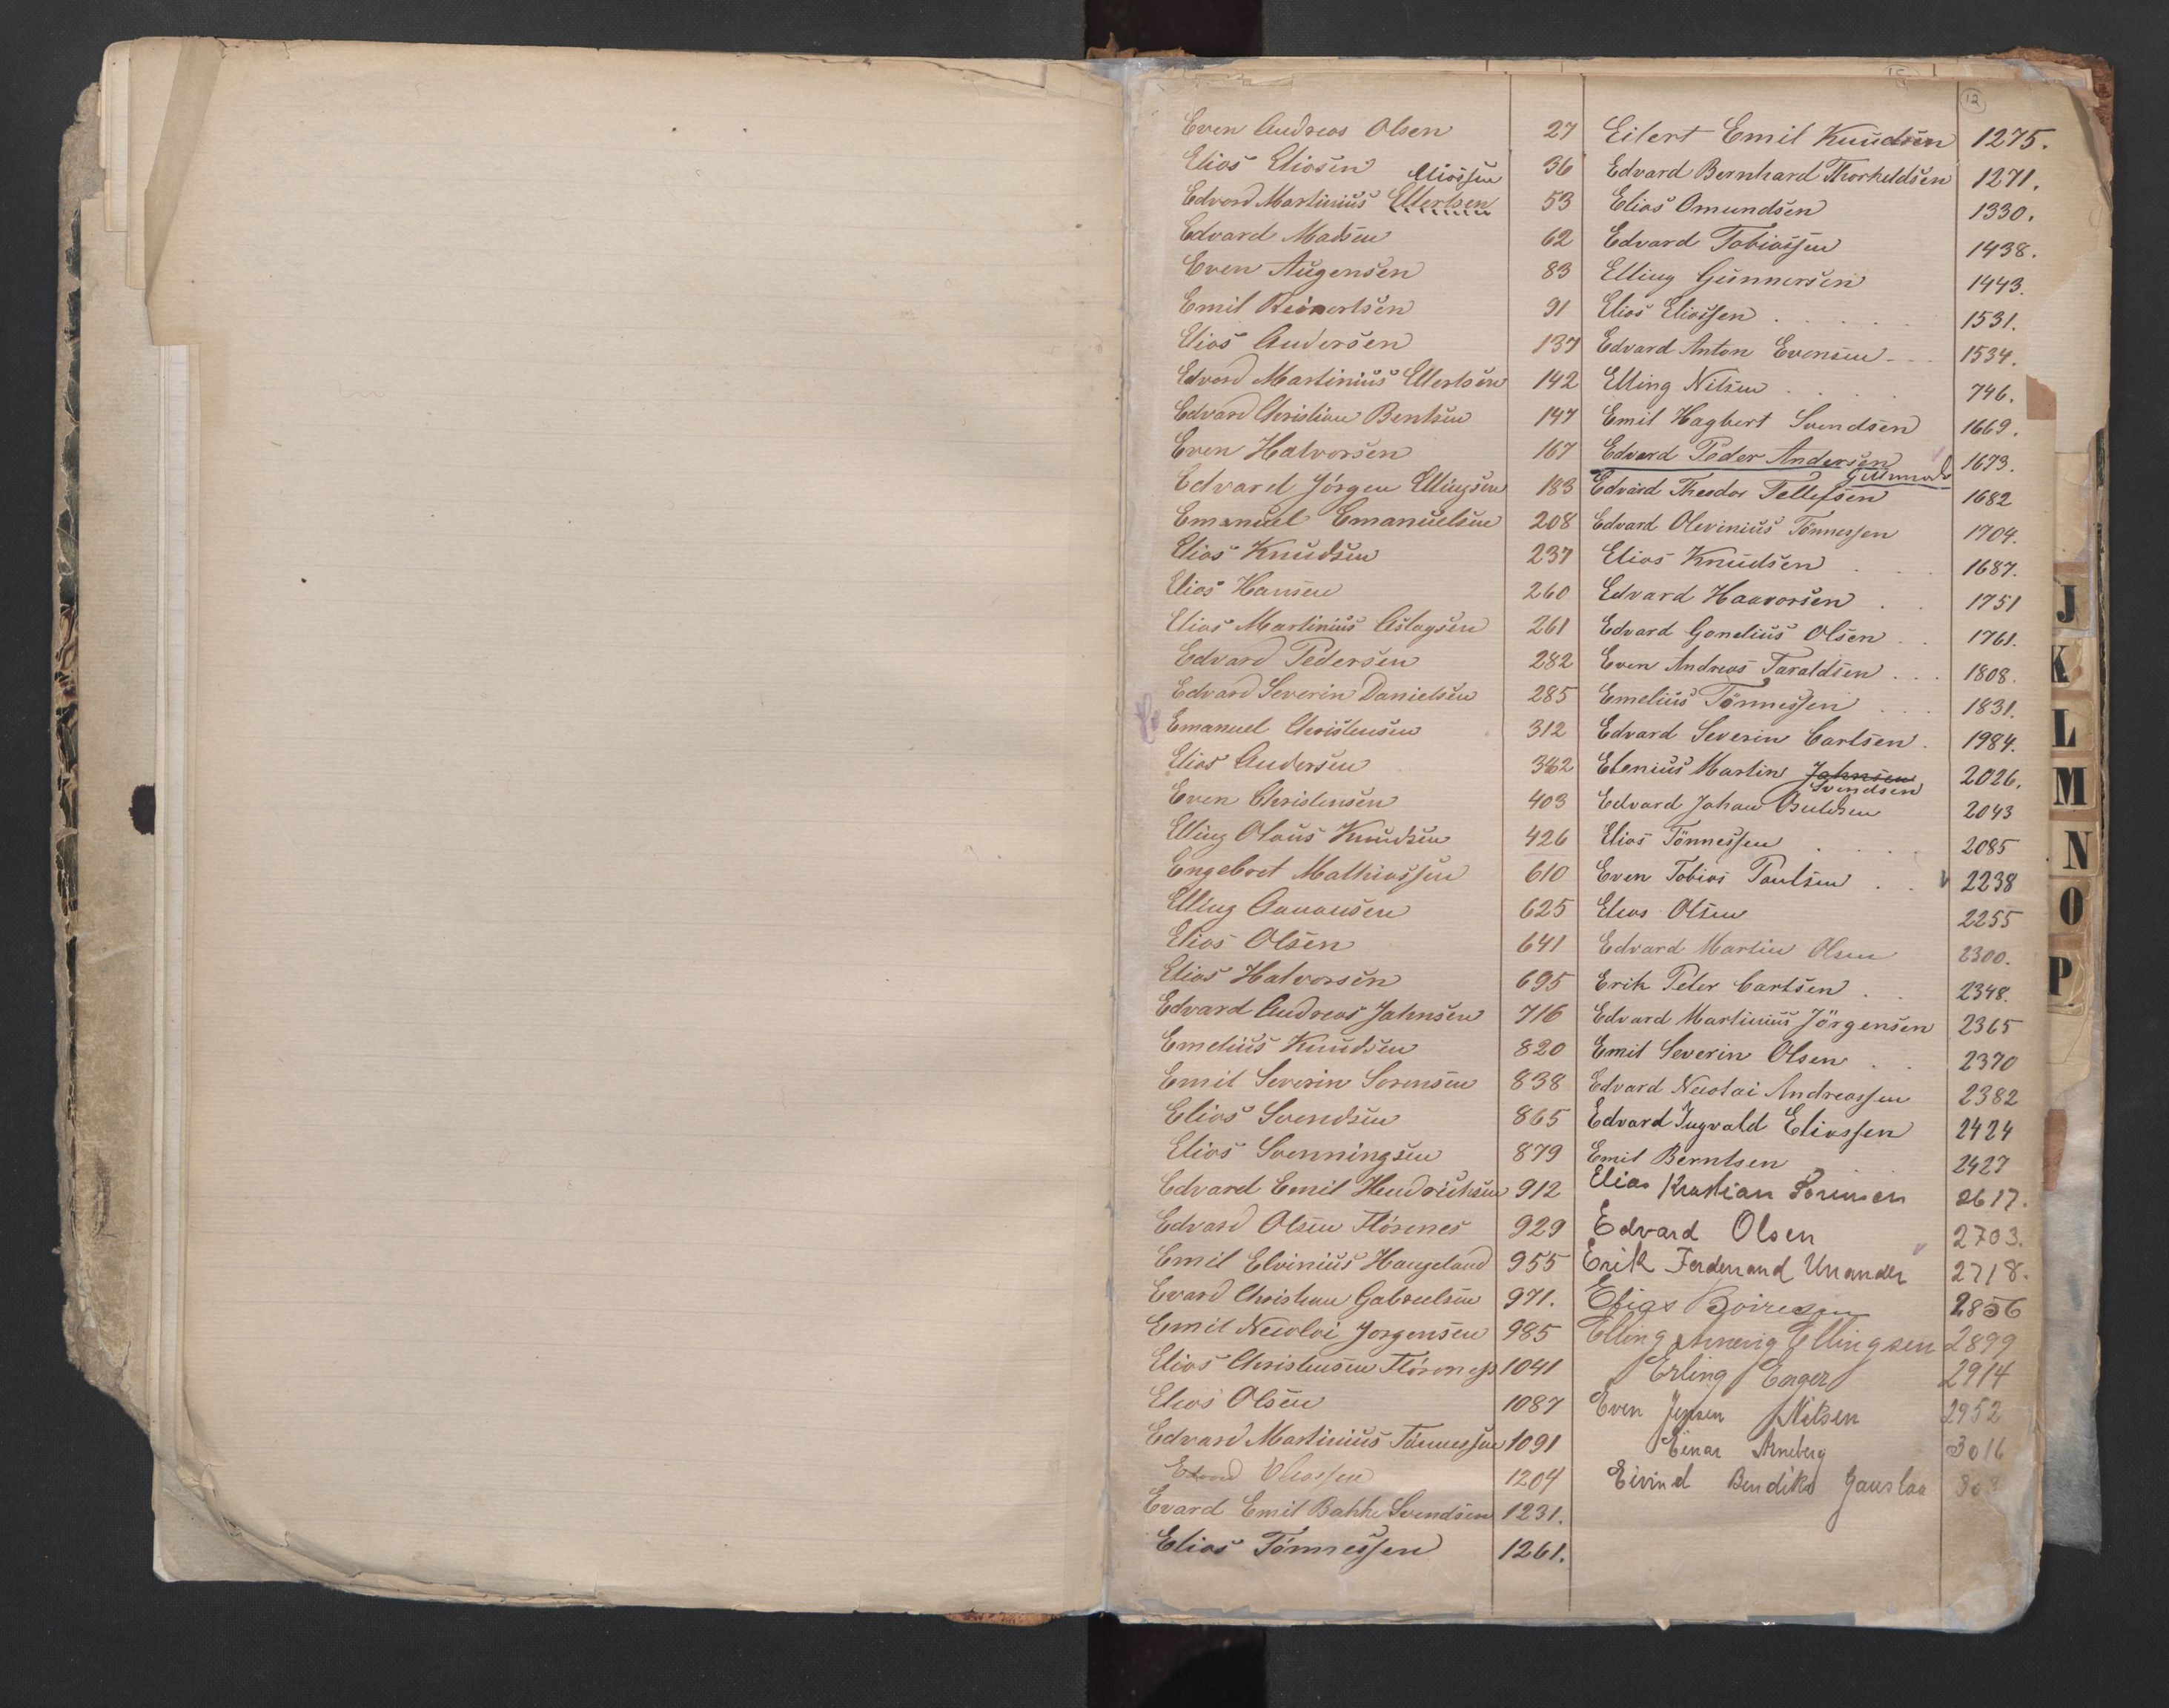 12
Even Andreas Olsen 27
Elias Eliasen 36
Eliassen
Edvard Martinius Ellertsen 53
Edvard Madsen 62
Even Augensen 83
Emil Reinertsen 91
Elias Andersen 137
Edvard Martinius Ellertsen 142
Edvard Christian Bentsen 147
Even Halvorsen 167
Edvard Jörgen Ellingsen 183
Emanuel Emanuelsen 208
Elias Knudsen 237
Elias Hansen 260
Elias Martinius Aslagsen 261
Edvard Pedersen 282
Edvard Severin Danielsen 285
Emanuel Christensen 312
Elias Andersen 362
Even Christensen 403
Elling Olaus Knudsen 426
Engebret Mathiassen 610
Elling Aanonsen 625
Elias Olsen 641
Elias Halvorsen 695
Edvard Andreas Jahnsen 716
Emelius Knudsen 820
Emil Severin Sorensen 838
Elias Svendsen 865
Elias Svenningsen 879
Edvard Emil Hendrichsen 912
Edvard Olsen Flörenes 929
Emil Elvinius Haugeland 955
Evard Christian Gabrielsen 971.
Emil Nicolai Jorgensen 985
Elias Christensen Flörenes 1041
Elias Olsen 1087
Edvard Martinius Tönnessen 1091
Edvard Oleassen 1204
Evard Emil Bakke Svendsen 1231.
Elias Tönnessen 1261.
Eilert Emil Knudsen 1275.
Edvard Bernhard Thorkeldsen 1271.
Elias Omundsen 1330.
Edvard Tobiassen 1438.
Elling Gunnersen 1443.
Elias Eliassen 1531.
Edvard Anton Evensen 1534.
Elling Nilsen 746.
Emil Hagbert Svendsen 1669.
Edvard Peder Andersen 1673.
Edvard Theodor Tellefsen 1682
Edvard Olevinius Tönnessen 1704.
Elias Knudsen 1687.
Edvard Haavorsen 1751
Edvard Gonelius Olsen 1761.
Even Andreas Taraldsen 1808.
Emelius Tönnessen 1831.
Edvard Severin Carlsen 1984.
Elenius Martin Jahnsen 2026.
Svendsen
Edvard Johan 2043
Elias Tönnessen 2085
Even Tobias Paulsen 2238
Elias Olsen 2255
Edvard Martin Olsen 2300.
Erik Peter Carlsen 2348.
Edvard Martinius Jörgensen 2365
Emil Severin Olsen 2370
Edvard Nicolai Andreassen 2382
Edvard Ingvald Eliassen 2424
Emil Berntsen 2427
Elias Kristian Sörensen 2617.
Edvard Olsen 2703.
Erik Ferdenand Unander 2718.
Elias Boiresen 2856
Elling Ellingsen 2899
Erling Enger 2914
Even Jensen Nilsen 2952
Einar Arneberg 3016
Eivind Bendiks Jauslaa
J
K
L
M
N
O
P